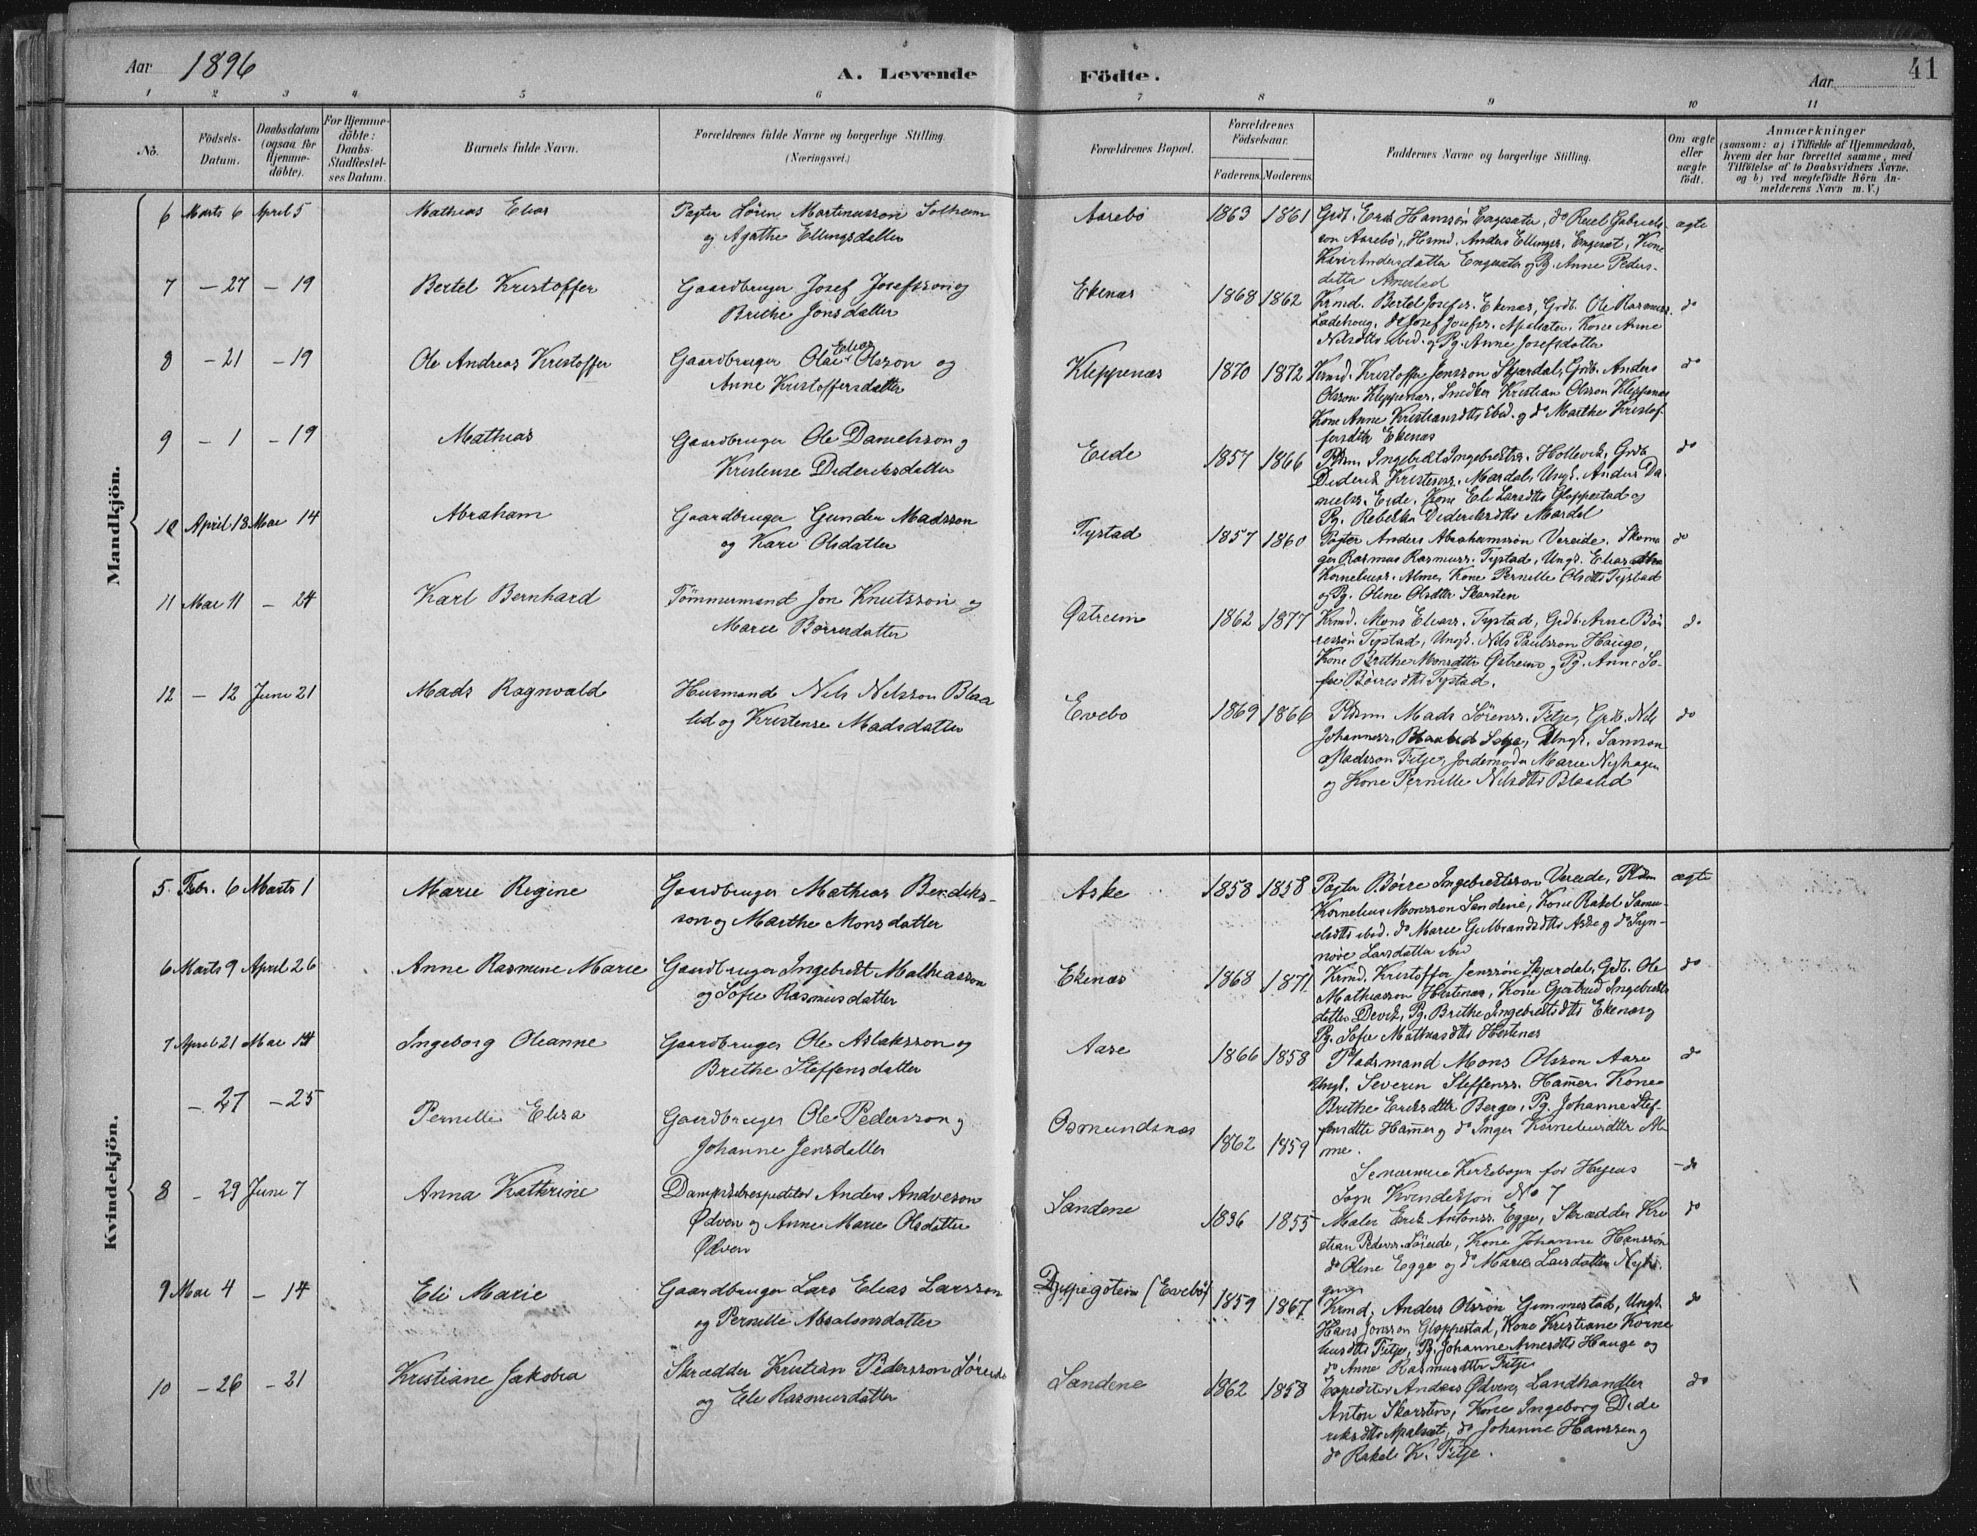 Aar 1896 A. Levende Födte. Aar 41
1 2 3 4 5 6 7 8 9 10 11
No. Födsels-Datum. Daabsdatum (ogsaa for Hjemme-döbte). For Hjemme-döbte: Daabs-Stadfæstel-ses Datum. Barnets fulde Navn. Forældrenes fulde Navne og borgerlige Stilling. (Næringsvei.) Forældrenes Bopæl. Forældrenes Födselsaar. Faderens. Moderens. Faddernes Navne og borgerlige Stilling. Om ægte eller uægte födt. Anmærkninger (saasom: a) i Tilfælde af Hjemmedaab, hvem der har forrettet samme, med Tilföielse af to Daabsvidners Navne, og b) ved uægtefödte Börn An-melderens Navn m. V.)
Mandkjön.
6 Marts 6 April 5 Mathias Elias Pagter Sören Martinusson Solheim
og Agathe Ellingsdatter
Aarebö 1863 1861 Grdb. Erik Hansson Engesæter, do Reiel Gabriels-
son Aarebö, Husmd. Anders Ellings. Engesæt, Kone
Kari Andersdatter Engesæter og Pg. Anne Peders-
datter
ægte
7 - 27 - 19 Bertel Kristoffer Gaardbruger Josef Josefsson og
Brithe Jonsdatter
Ekenæs 1868 1862 Krmd. Bertel Josefs. Ekenæs, Grdb. Ole Rasmuss.
Ladehoug, do Josef Josefs. Apalsæter, Kone Anne
Nilsdtr ibid. og Pg. Anne Josefsdatter
do
8 - 21 - 19 Ole Andreas Kristoffer Gaardbruger Olai Elias Olsson og
Anne Kristoffersdatter
Kleppenæs 1870 1872 Krmd. Kristoffer Jensson Skjærdal, Grdb. Anders
Olsson Kleppenæs, Snedker Kristian Olsson Kleppenæs
Kone Anne Kristiansdtr ibid. og do Marthe Kristof-
fersdtr Ekenæs
do
9 - 1 - 19 Mathias Gaardbruger Ole Danielsson og
Kristense Dideriksdatter
Eide 1857 1866 Pldsm. Ingebrigt Ingebrigts. Hollevik, Grdb.
Diderik Kristens. Mardal, Ungk. Anders Da-
niels. Eide, Kone Eli Larsdtr Gloppestad og
Pg. Rebekka Dideriksdtr Mardal
do
10 April 18 Mai 14 Abraham Gaardbruger Gunder Madsson
og Kari Olsdatter
Tystad 1857 1860 Pagter Anders Abrahamsson Vereide, Skoma-
ger Rasmus Rasmuss. Tystad, Ungk. Elias
Kornelius. Alme, Kone Pernille Olsdtr Tystad
og Pg. Oline Olsdtr Skarsten
do
11 Mai 11 - 24 Karl Bernhard Tömmermand Jon Knutsson og
Marie Börresdatter
Östreim 1862 1877 Krmd. Mons Elias. Tystad, Grdb. Arne Bör-
resson Tystad, Ungk. Nils Paulsson Hauge,
Kone Brithe Monsdtr Östreim og Pg. Anne So-
fie Börresdtr Tystad.
do
12 - 12 Juni 21 Mads Ragnvald Husmand Nils Nilsson Blaa-
lid og Kristense Madsdatter
Evebö 1869 1866 Pldsm Mads Sörens. Fitje, Grdb. Nils
Johannes. Blaalid, Ungk. Samson
Madsson Fitje, Jordemoder Marie Nyhagen
og Kone Pernille Nilsdtr Blaalid
do
Kvindekjön.
5. Febr. 6 Marts 1 Marie Regine Gaardbruger Mathias Bendiks-
son og Marthe Monsdatter
Aske 1858 1858 Pagter P. Börre Ingebrigtsson Vereide, Pldsm
Kornelius Monsson Sandene, Kone Rakel Samu-
elsdtr ibid. do Marie Gulbrandsdtr Aske og do Syn-
növe Larsdatter ibid
ægte
6 Marts 9 April 26 Anne Rasmine Marie Gaardbruger Ingebrigt Mathiasson
og Sofie Rasmusdatter
Ekenæs 1868 1871 Krmd. Kristoffer Jensson Skjærdal, Grdb. Ole
Mathiasson Hestenæs, Kone Gjertrud Ingebrigts-
datter Devik, Pg. Brithe Ingebrigtsdtr Ekenæs og
Pg. Sofie Mathiasdtr Hestenæs
do
7 April 21 Mai 14 Ingeborg Oleanne Gaardbruger Ole Aslaksson og
Brithe Steffensdatter
Aase 1866 1858 Pladsmand Mons Olsson Aase
Ungk. Severin Steffens. Hamer, Kone
Brithe Eriksdtr Berge, Pg. Johanne Stef-
fensdtr Hamer og do Inger Korneliusdtr Al-
me.
do
- 27 - 25 Pernille Elisa Gaardbruger Ole Pedersson og
Johanne Jensdatter
Osmundsnæs 1862 1859 Se Kirkebogen for Hyens
Sogn Kvindekjön No 7
- do
8 - 29 Juni 7 Anna Kathrine Dampskibsexpeditör Anders Andersson
Ödven og Anne Marie Olsdatter
Ödven
Sandene 1836 1855 Maler Erik Antons. Egge, Skrædder Kri-
stian Peders. Söreide, Kone Johanne Hansson
do Oline Egge og do Marie Larsdatter Nyha-
gen
do
9 Mai 4 - 14 Eli Marie Gaardbruger Lars Elias Larsson
og Pernille Absalonsdatter
(Evebö) 1859 1867 Krmd. Anders Olsson Gimmestad, Ungk.
Hans Jonsson Gloppestad, Kone Kristiane Korne-
liusdtr Fitje, Pg. Johanne Arnesdtr Hauge og
do Anne Rasmusdtr Fitje
do
10 - 26 - 21 Kristiane Jakobia Skrædder Kristian Pedersson Söreide
og Eli Rasmusdatter
Sandene 1862 1858 Expeditör Anders Ödven, Landhandler
Anton Skarsten, Kone Ingeborg Dide-
riksdtr Apalset, do Johanne Hanssen og
do Rakel K. Fitje.
do